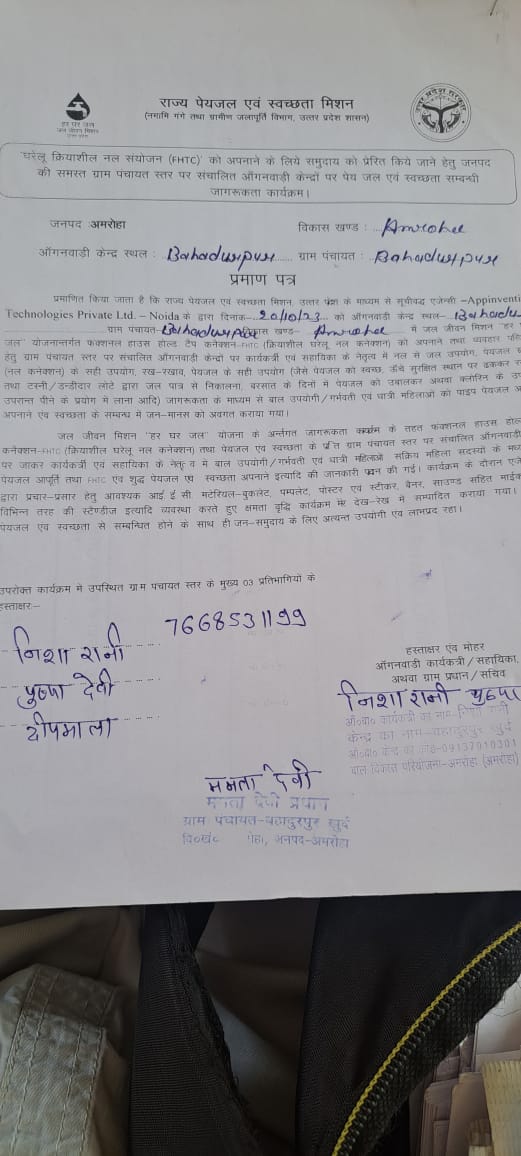 राज्य पेयजल एवं स्वच्छता मिशन
(नमामि गंगे तथा ग्रामीण जलापूर्ति विभाग, उत्तर प्रदेश शासन)
हर घर जल
जल जीवन मिशन
'घरेलू क्रियाशील नल संयोजन (FHTC)' को अपनाने के लिये समुदाय को प्रेरित किये जाने हेतु जनपद
की समस्त ग्राम पंचायत स्तर पर संचालित आँगनवाड़ी केन्द्रों पर पेय जल एवं स्वच्छता सम्बन्धी
जागरूकता कार्यक्रम।
जनपद : अमरोहा विकास खण्ड : Amrohee
ऑगनवाडी केन्द्र स्थल : Bahadurpur ग्राम पंचायत : Bahadurpur
प्रमाण पत्र
प्रमाणित किया जाता है कि राज्य पेयजल एवं स्वच्छता मिशन, उत्तर के माध्यम से सूचीवद्ध एजेन्सी –Appinventi
Technologies Private Ltd. – Noida के द्वारा दिनांक 20/10/23 को ऑगनवाडी केन्द्र स्थल– Bahadu
ग्राम पंचायत– Bahadurpur विकास खण्ड– Amrohee में जल जीवन मिशन "हर
जल" योजनान्तर्गत फंक्शनल हाउस होल्ड टैप कनेक्शन-FHTC (क्रियाशील घरेलू नल कनेक्शन) को अपनाने तथा व्यवहार
हेतु ग्राम पंचायत स्तर पर संचालित ऑगनवाडी केन्द्रों पर कार्यकर्त्री एवं सहायिका के नेतृत्व में नल से जल उपयोग, पेयजल
(नल कनेक्शन) के सही उपयोग, रख-रखाव, पेयजल के सही उपयोग (जैसे पेयजल को स्वच्छ, ऊँचे सुरक्षित स्थान पर ढककर
तथा टस्नी/डन्डीदार लोटे द्वारा जल पात्र से निकालना, बरसात के दिनों में पेयजल को उबालकर अथवा क्लोरिन के
उपरान्त पीने के प्रयोग में लाना आदि) जागरूकता के माध्यम से बाल उपयोगी/गर्भवती एवं धात्री महिलाओं को पाइप पेयजल
अपनाने एंव स्वच्छता के सम्बन्ध में जन-मानस को अवगत कराया गया।
जल जीवन मिशन "हर घर जल" योजना के अर्न्तगत जागरूकता कार्यक्रम के तहत फक्शनल हाउस होल
कनेक्शन-FHTC (क्रियाशील घरेलू नल कनेक्शन) तथा पेयजल एवं स्वच्छता के प्रति ग्राम पंचायत स्तर पर संचालित ऑगनवाडी
पर जाकर कार्यकर्त्री एवं सहायिका के नेतृत्व में बाल उपयोगी/गर्भवती एवं धात्री महिलाओं सक्रिय महिला सदस्यों के
पेयजल आपूर्ति तथा FHTC एवं शुद्ध पेयजल एवं स्वच्छता अपनाने इत्यादि की जानकारी की गई। कार्यक्रम के दौरान
द्वारा प्रचार-प्रसार हेतु आवश्यक आई ई सी. मटेरियल-बुकलेट, पम्पलेट, पोस्टर एवं स्टीकर, बैनर, साउण्ड सहित माईक
विभिन्न तरह की स्टैण्डीज इत्यादि व्यवस्था करते हुए क्षमता वृद्धि कार्यक्रम देख-रेख में सम्पादित कराया गया।
पेयजल एवं स्वच्छता से सम्बन्धित होने के साथ ही जन-समुदाय के लिए अत्यन्त उपयोगी एवं लाभप्रद रहा।
उपरोक्त कार्यक्रम में उपस्थित ग्राम पंचायत स्तर के मुख्य 03 प्रतिभागियों के
हस्ताक्षर:–
7668531199
निशा रानी
पुष्पा देवी
दीपमाला
हस्ताक्षर एंव मोहर
ऑगनवाडी कार्यकर्त्री/सहायिका,
अथवा ग्राम प्रधान/सचिव
निशा रानी पुष्पा
आं०बा० कार्यकत्री का नाम-निशा रानी
केन्द्र का नाम-बहादुरपुर खुर्द
आं०बा० केन्द्र का कोड-09137010301
बाल विकास परियोजना-अमरोहा (अमरोहा)
ममता देवी
ममता देवी प्रधान
ग्राम पंचायत-बहादुरपुर खुर्द
वि०खं० जनपद-अमरोहा